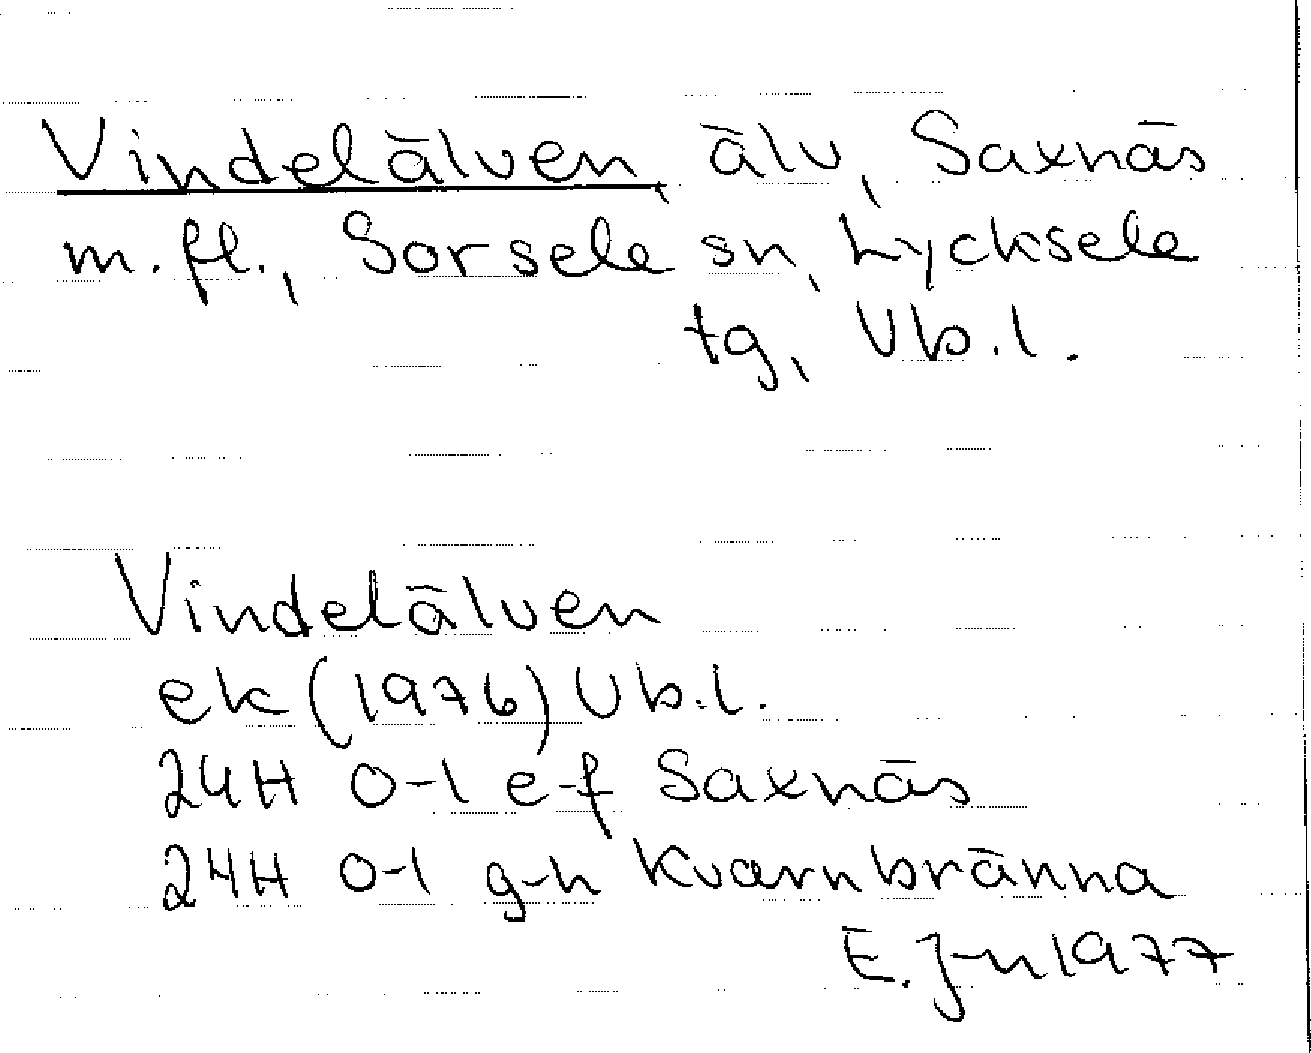 Vindelälven, älv, Saxnäs
m.fl., Sorsele sn, Lycksele
tg, Vb.l.
Vindelälven
ek (1976) Vb.l.
24H 0-1 e-f Saxnäs
24H 0-1 g-h Kvarnbränna
E. J-n 1977